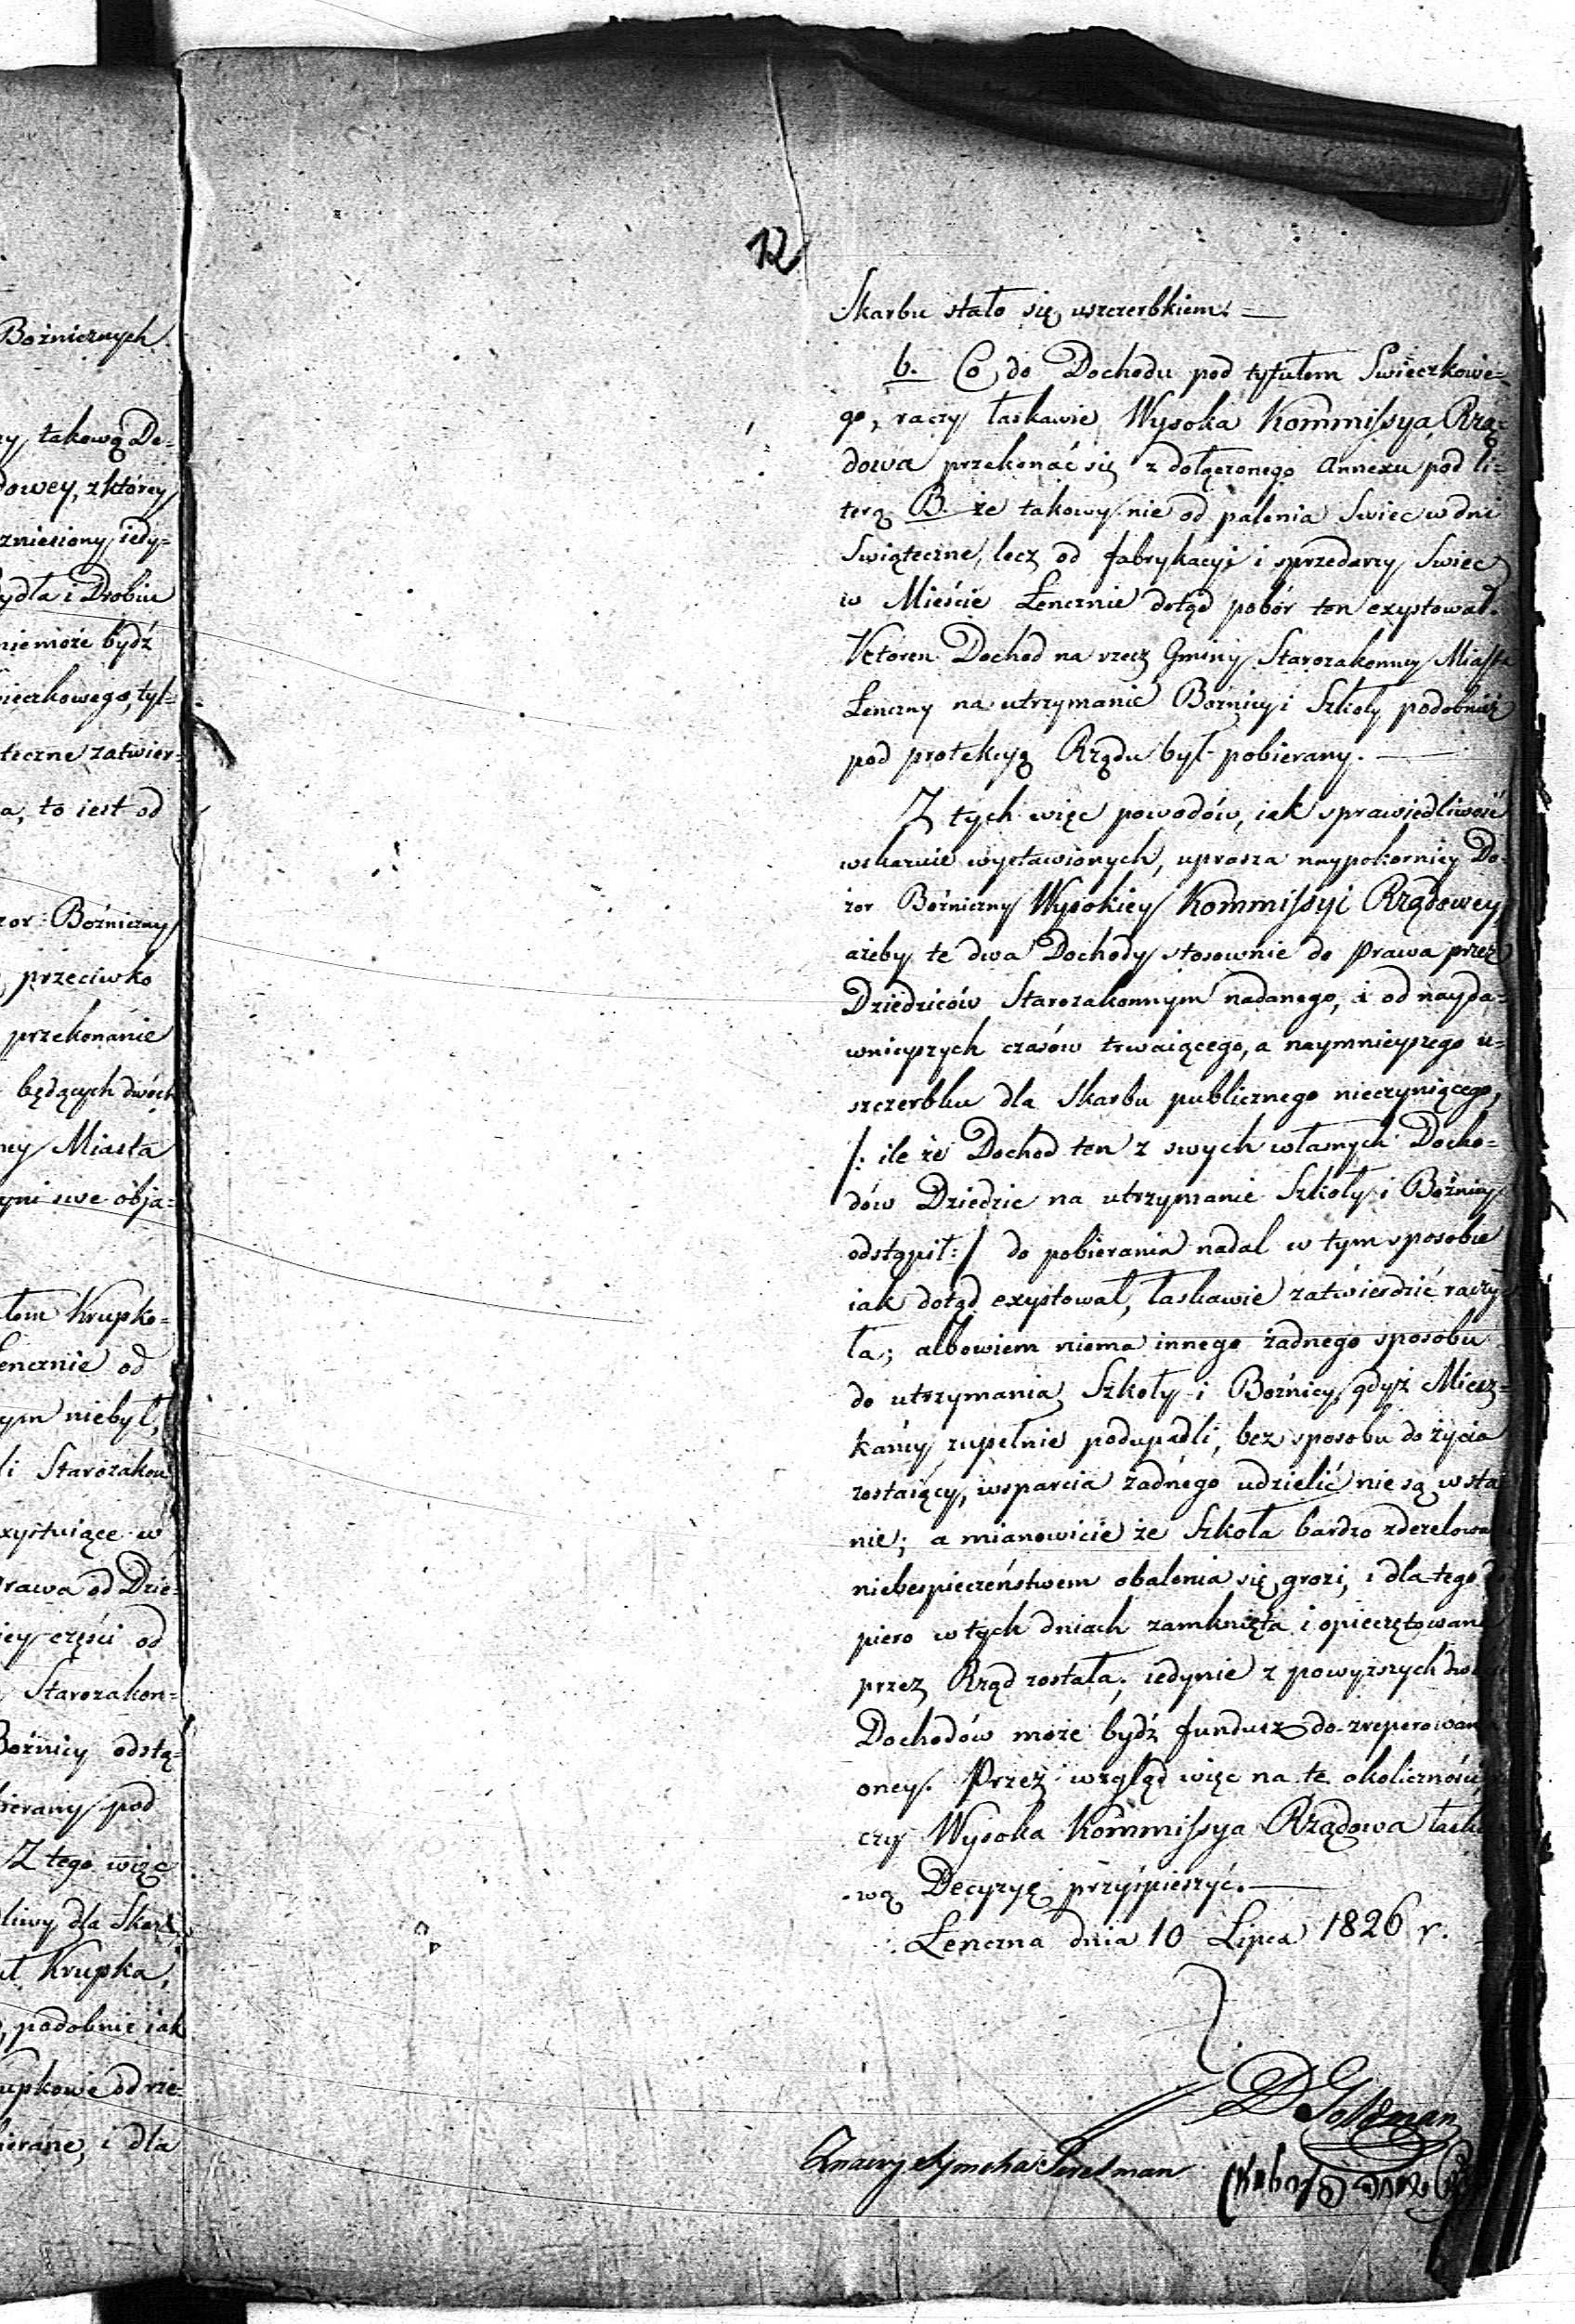 Bożnicznych
ry takową De=
dowey, z którey
zniesiony iedy=
Bydła i Drobiu
niemoże bydź
wieczkowego, tyl=
teczne zatwier=
a, to iest od
zor Bożniczny
przeciwko
przekonanie
będących dwóch
ney Miasta
yni swe obja=
ułem Krupko=
Lencznie od
ym niebył,
li Starozakon
exystuiące w
prawa od Dzie=
iey części od
Starozakon=
Bożnicy odstą=
bierany pod
Z tego więc
liwy dla Skar
ut Krupka,
podobnie iak
upkowe od rze=
bierane, i dla
12
Skarbu stało się uszczerbkiem. —
b. Co do Dochodu pod tytułem Swieczkowe=
go, raczy łaskawie Wysoka Kommissya Rzą=
dowa przekonać się z dołączonego Annexu pod li=
terą B. że takowy nie od palenia Swiec w dni
Swiąteczne, lecz od fabrykacyi i sprzedarzy Swiec
w Mieście Lencznie dotąd pobór ten exystował.
Ktoren Dochod na rzecz Gminy Starozakonney Miasta
Lenczny na utrzymanie Bożnicy i Szkoły podobnież
pod protekcyą Rządu był pobierany. —
Z tych więc powodów, iak sprawiedliwość
wskazuie wystawionych, uprasza naypokorniey Do=
zor Bożniczny Wysokiey Kommissyi Rządowey,
ażeby te dwa Dochody stosownie do Prawa przez
Dziedziców Starozakonnym nadanego, i od nayda=
wnieyszych czasów trwaiącego, a naymnieyszego u=
szczerbku dla Skarbu publicznego nieczyniącego,
/: ile że Dochod ten z swych własnych Docho=
dów Dziedzic na utrzymanie Szkoły i Bożnicy
odstąpił :/ do pobierania nadal w tym sposobie
iak dotąd exystował, łaskawie zatwierdzić raczy=
ła; albowiem niema innego żadnego sposobu
do utrzymania Szkoły i Bożnicy, gdyż Miesz=
kańcy zupełnie podupadli, bez sposobu do życia
zostaiący, wsparcia żadnego udzielić nie są w sta
nie; a mianowicie że Szkoła bardzo zdezelowa
niebespieczeństwem obalenia się grozi, i dla tego do
piero w tych dniach zamknięta i opieczętowana
przez Rząd została; iedynie z powyższych dwoch
Dochodów może bydź fundusz do zreperowania
oney. Przez wzgląd więc na te okoliczności,
czy Wysoka Kommissya Rządowa łaska
wą Decyzyę przyśpieszyć. —
Lenczna dnia 10 Lipca 1826 r.
D Goldman
Symcha Perelman